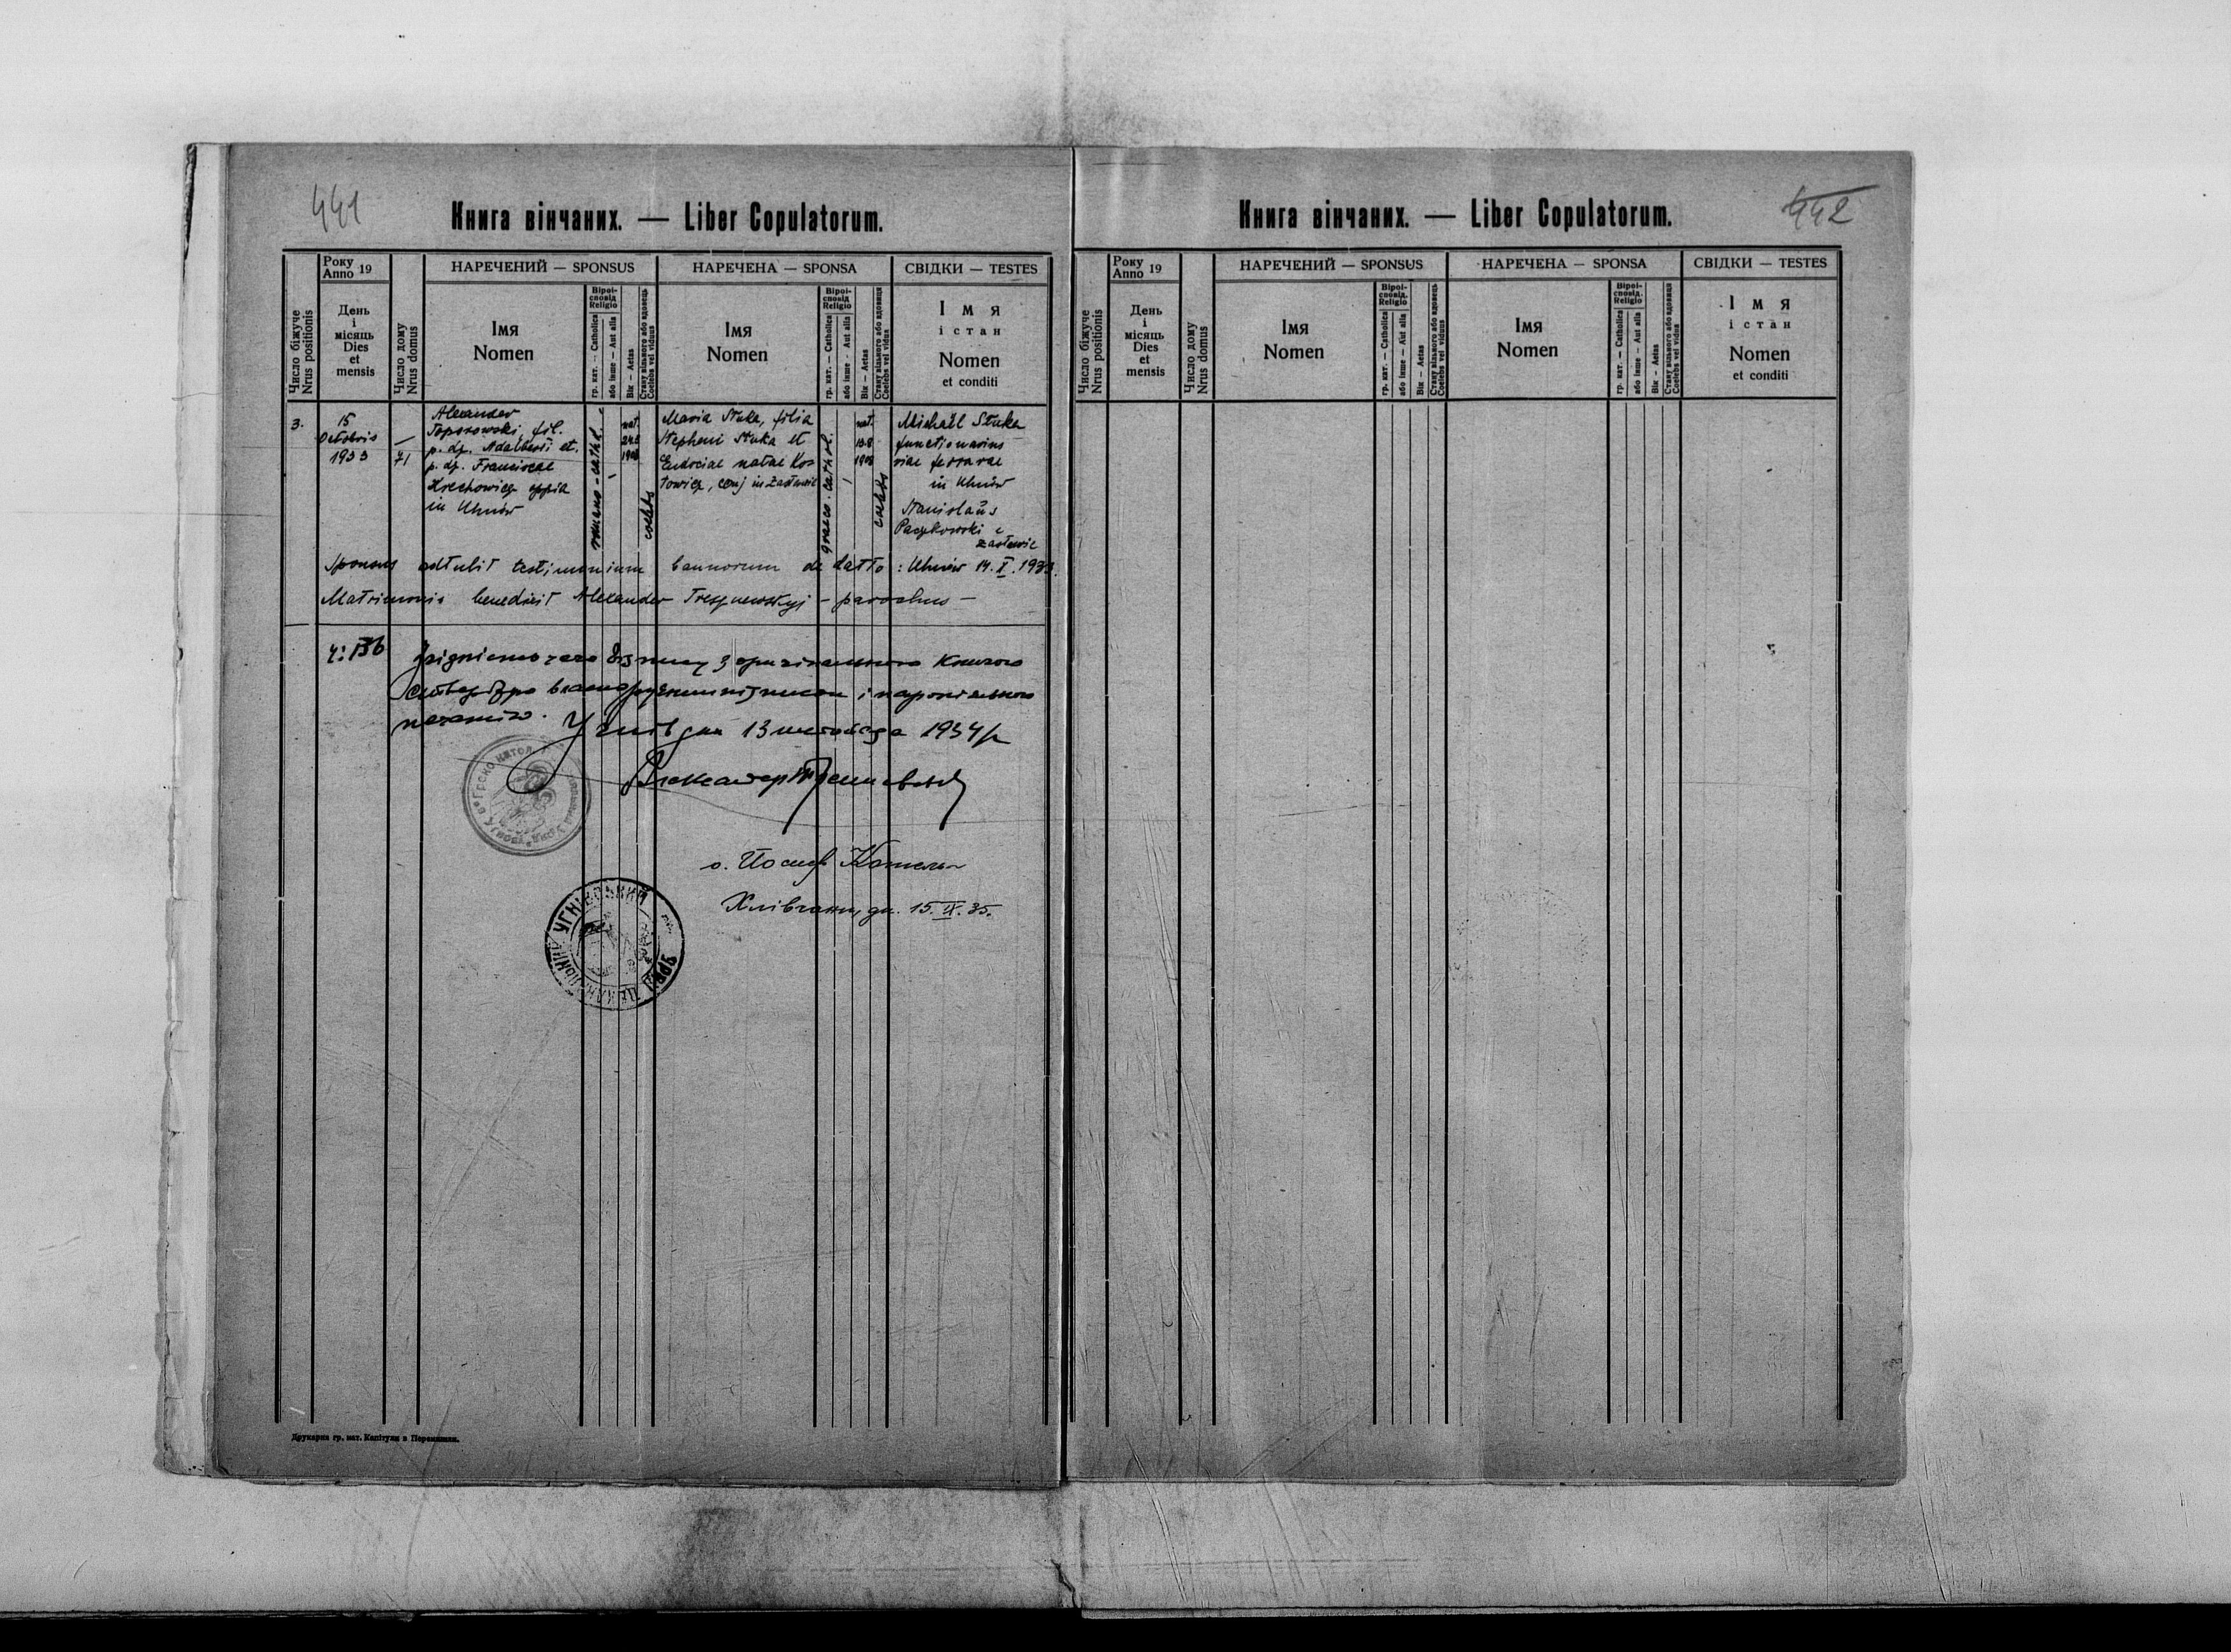 441
Книга вінчаних. — Liber Copulatorum.
Число біжуче
Nrus positionis
Року
Anno 19
День
і
місяць
Dies
et
mensis
Число дому
Nrus domus
НАРЕЧЕНИЙ — SPONSUS
Імя
Nomen
Віроі-
сповід
Religio
гр. кат. — Catholica
або інше — Aut alia
Вік — Aetas
Стану вільного або вдовець
Coelebs vel viduus
НАРЕЧЕНА — SPONSA
Імя
Nomen
Віроі-
сповід
Religio
гр. кат. — Catholica
або інше - Aut alia
Вік — Aetas
Стану вільного або вдовиця
Coelebs vel vidua
СВІДКИ — TESTES
Імя
і стан
Nomen
et conditi
3.
15
Octobris
1933
—
71
Alexander
Toporowski, fil.
p. df. Adalberti et
p. df. Franciscae
Krechowicz oppid
in Uhnów
romano-cath.
nat.
1908
coelebs
Maria Stuka, filia
Stepheni Stuka et
Eudociae natae Kos
towicz, conj in Zastawie
graeco.cathol.
nat.
13.8
1908
coelebs
Michaël Stuka
functionarius
viae ferrarae
in Uhnów
Stanislaus
Paczkowski
Zastawie
Sponsus adtulit testimonium bannorum de datto : Uhnów 14.X.1933.
Matrimonio benedixit Alexander Treszniewskyj - parochus -
Згідність сего відпису з оригінальною книгою
стверджую власноручним підписом і парохіяльною
печатию. Угнів дня 13 листопада 1934 р
Александер Трешневский
о. Йосиф
Хлівчани, дн. 15.IX.35.
УГНІВСЬКИЙ
Друкарня гр. кат. Капітули в Перемишли.
442
Книга вінчаних. — Liber Copulatorum.
Число біжуче
Nrus positionis
Року
Anno 19
День
і
місяць
Dies
et
mensis
Число дому
Nrus domus
НАРЕЧЕНИЙ — SPONSUS
Імя
Nomen
Віроі-
сповід.
Religio
гр. кат. — Catholica
або інше — Aut alia
Вік — Aetas
Стану вільного або вдовець
Coelebs vel viduus
НАРЕЧЕНА — SPONSA
Імя
Nomen
Віроі-
сповід.
Religio
гр. кат. — Catholica
або інше — Aut alia
Вік — Aetas
Стану вільного або вдовиця
Coelebs vel vidua
СВІДКИ — TESTES
Імя
і стан
Nomen
et conditi